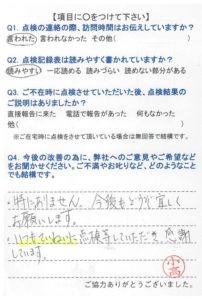 【項目に○をつけて下さい】
Q1. 点検の連絡の際、訪問時間はお伝えしていますか?
言われた 言われなかった その他( )
Q2. 点検記録表は読みやすく書かれていますか?
読みやすい 一応読める 読みづらい 読めない部分がある
Q3. ご不在時に点検させていただいた後、点検結果の
ご説明はありましたか?
直接報告に来た 電話で報告があった 何もなかった
他( )
※ご在宅時に点検をさせて頂いている場合は無回答で結構です。
Q4. 今後の改善の為に、弊社へのご意見やご希望などを
お聞かせください。ご不満やお叱りなど、どのようなことでも
結構です。
・特にありません。今後もどうぞ宜しく
お願いします。
・いつもていねいに点検等していただき、感謝
しています。
小高
ご協力ありがとうございました。